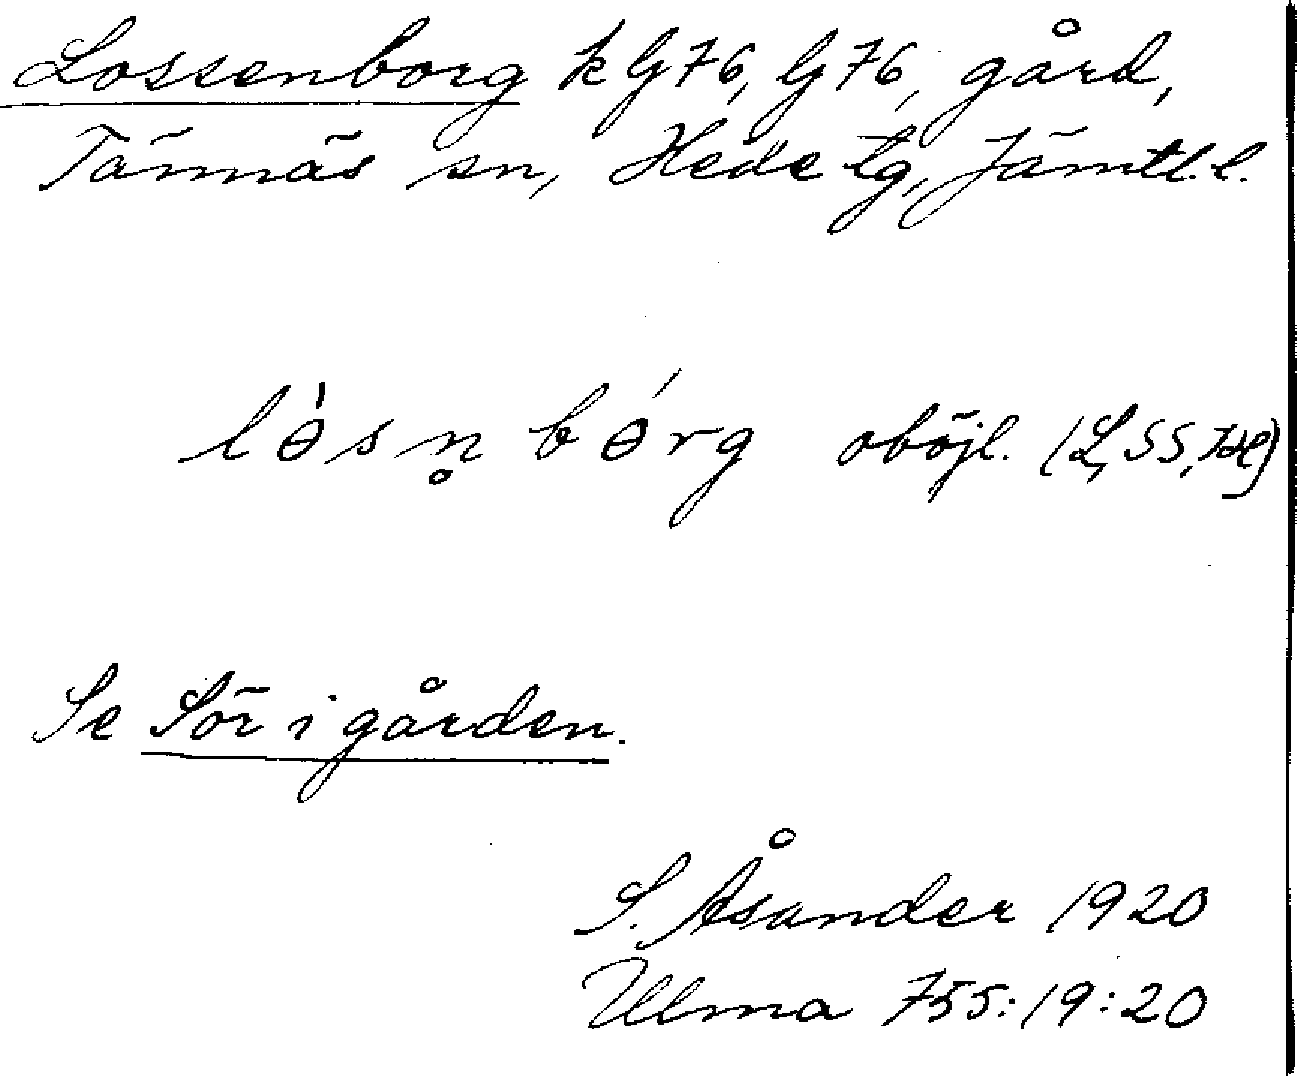 Lossenborg k G76, G76, gård,
Tännäs sn, Hede tg, Jämtl. l.
lɵ̀sn̥ bɵ́rg oböjl. (L, SS,
Se Sör i gården.
S. Åsander 1920
Ulma 755:19:20